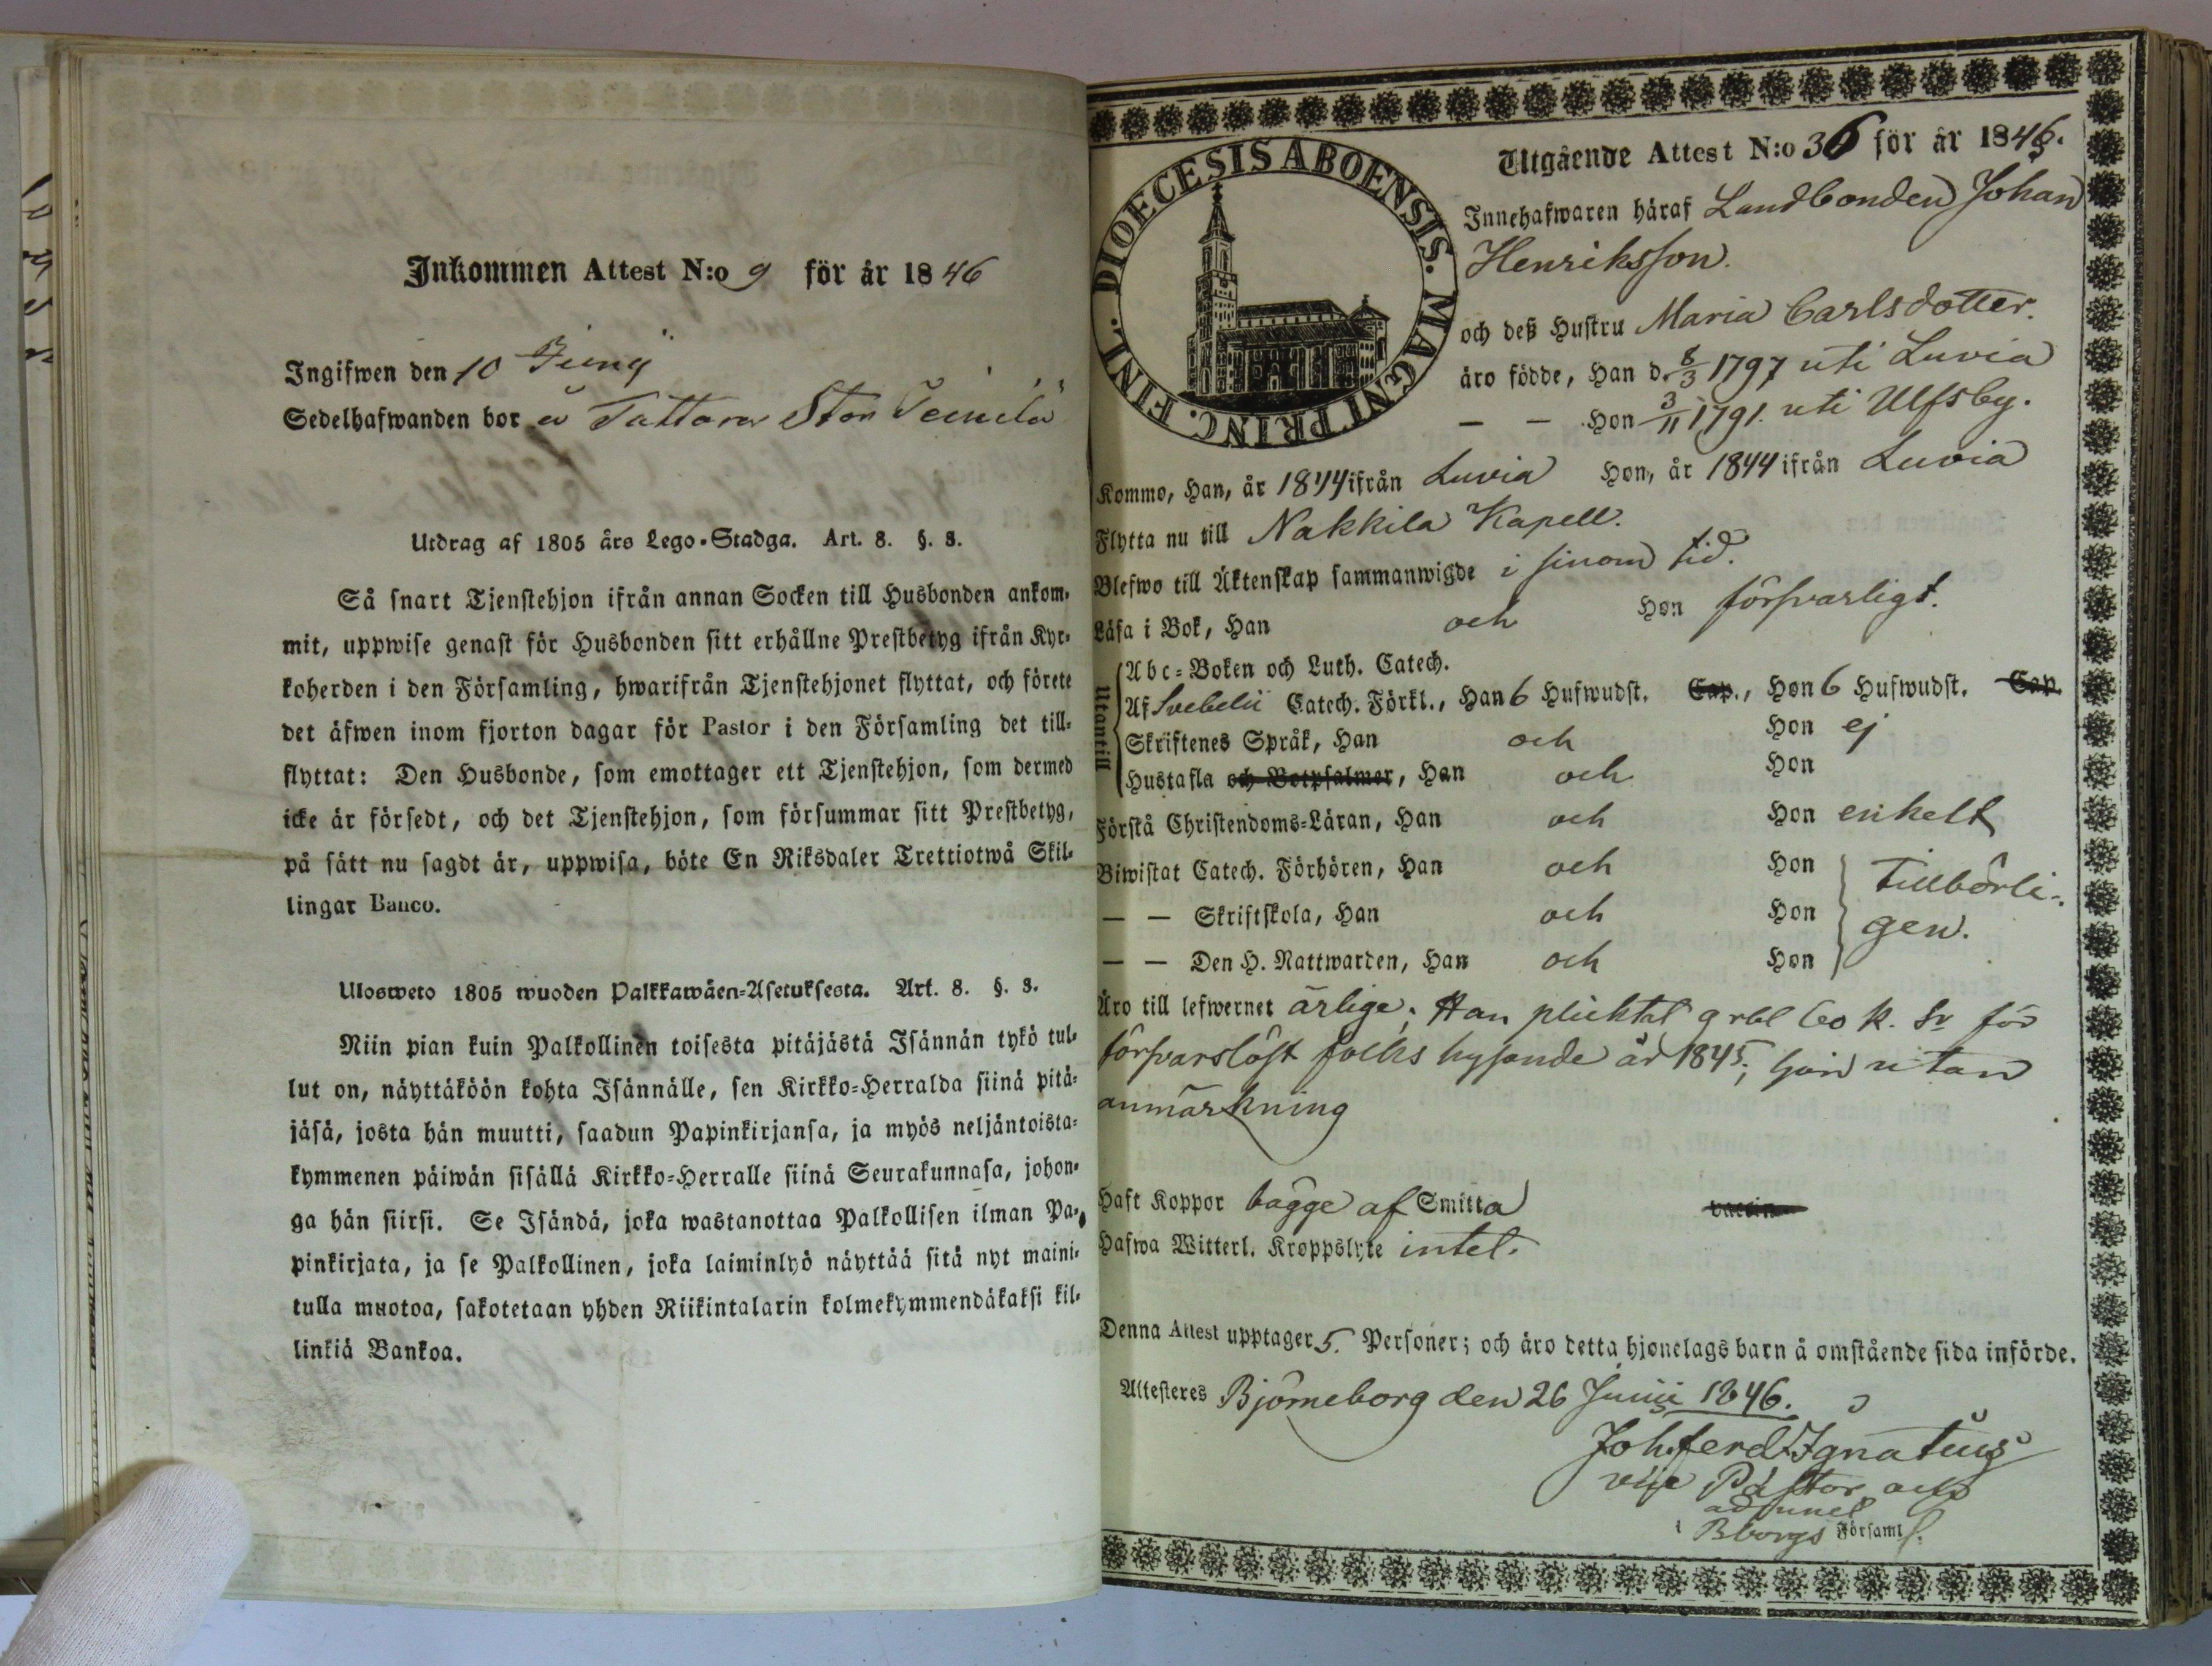 Inkommen Attest N:o 9 för år 1846
Ingifwen den 10 Junij
Sedelhafwanden bor å Tattara Stor Teinilä
Utdrag af 1805 års Lego-Stadga. Art. 8. §. 3.
Så snart Tjenstehjon ifrån annan Socken till Husbonden ankom-
mit, uppwise genast för Husbonden sitt erhållne Prestbetyg ifrån Kyr-
koherden i den Församling, hwarifrån Tjenstehjonet flyttat, och förete
det äfwen inom fjorton dagar för Pastor i den Församling det till-
flyttat: Den Husbonde, som emottager ett Tjenstehjon, som dermed
icke är försedt, och det Tjenstehjon, som försummar sitt Prestbetyg,
på sätt nu sagdt är, uppwisa, böte En Riksdaler Trettiotwå Skil-
lingar Banco.
Ulosweto 1805 wuoden Palkkawäen-Asetuksesta. Art. 8. §. 3.
Niin pian kuin Palkollinen toisesta pitäjästä Isännän tykö tul-
lut on, näyttäköön kohta Isännälle, sen Kirkko-Herralda siinä pitä-
jäsä, josta hän muutti, saadun Papinkirjansa, ja myös neljäntoista-
kymmenen päiwän sisällä Kirkko-Herralle siinä Seurakunnasa, johon-
ga hän siirsi. Se Isändä, joka wastanottaa Palkollisen ilman Pa-
pinkirjata, ja se Palkollinen, joka laiminlyö näyttää sitä nyt maini-
tulla muotoa, sakotetaan yhden Riikintalarin kolmekymmendäkaksi kil-
linkiä Bankoa.
DIOECESIS ABOENSIS. MAGNI PRINC. FINL.
Utgående Attest N:o 36 för år 1846.
Innehafwaren häraf Landbonden Johan
Henriksson.
och deß Hustru Maria Carlsdotter.
äro födde, Han d. 8/3 1797 uti Luvia
— — Hon 3/11 1791. uti Ulfsby.
Kommo, Han, år 1844 ifrån Luvia Hon, år 1844 ifrån Luvia
Flytta nu till Nakkila Kapell.
Blefwo till Äktenskap sammanwigde i sinom tid.
Läsa i Bok, Han och Hon försvarligt.
Utantill
Abc-Boken och Luth. Catech.
Af Svebelii Catech. Förkl., Han 6 Hufwudst. Cap., Hon 6 Hufwudst. Cap.
Skriftenes Språk, Han och Hon ej
Hustafla och Botpsalmer, Han och Hon
Förstå Christendoms-Läran, Han och Hon enkelt
Biwistat Catech. Förhören, Han och Hon tillbörli-
— — Skriftskola, Han och Hon gen.
— — Den H. Nattwarden, Han och Hon
Äro till lefwernet ärlige; Han pliktat 9 rbl 60 k. Sr för
försvarslöst folks hysande år 1845; hon utan
anmärkning
Haft Koppor bägge af Smitta vaccin
Hafwa Witterl. Kroppslyte intet.
Denna Attest upptager 5. Personer; och äro detta hjonelags barn å omstående sida införde.
Attesteres Björneborg den 26 Junii 1846.
Joh. Ferd. Ignatius
vice Pastor och
adjunct
i Bborgs Församl.